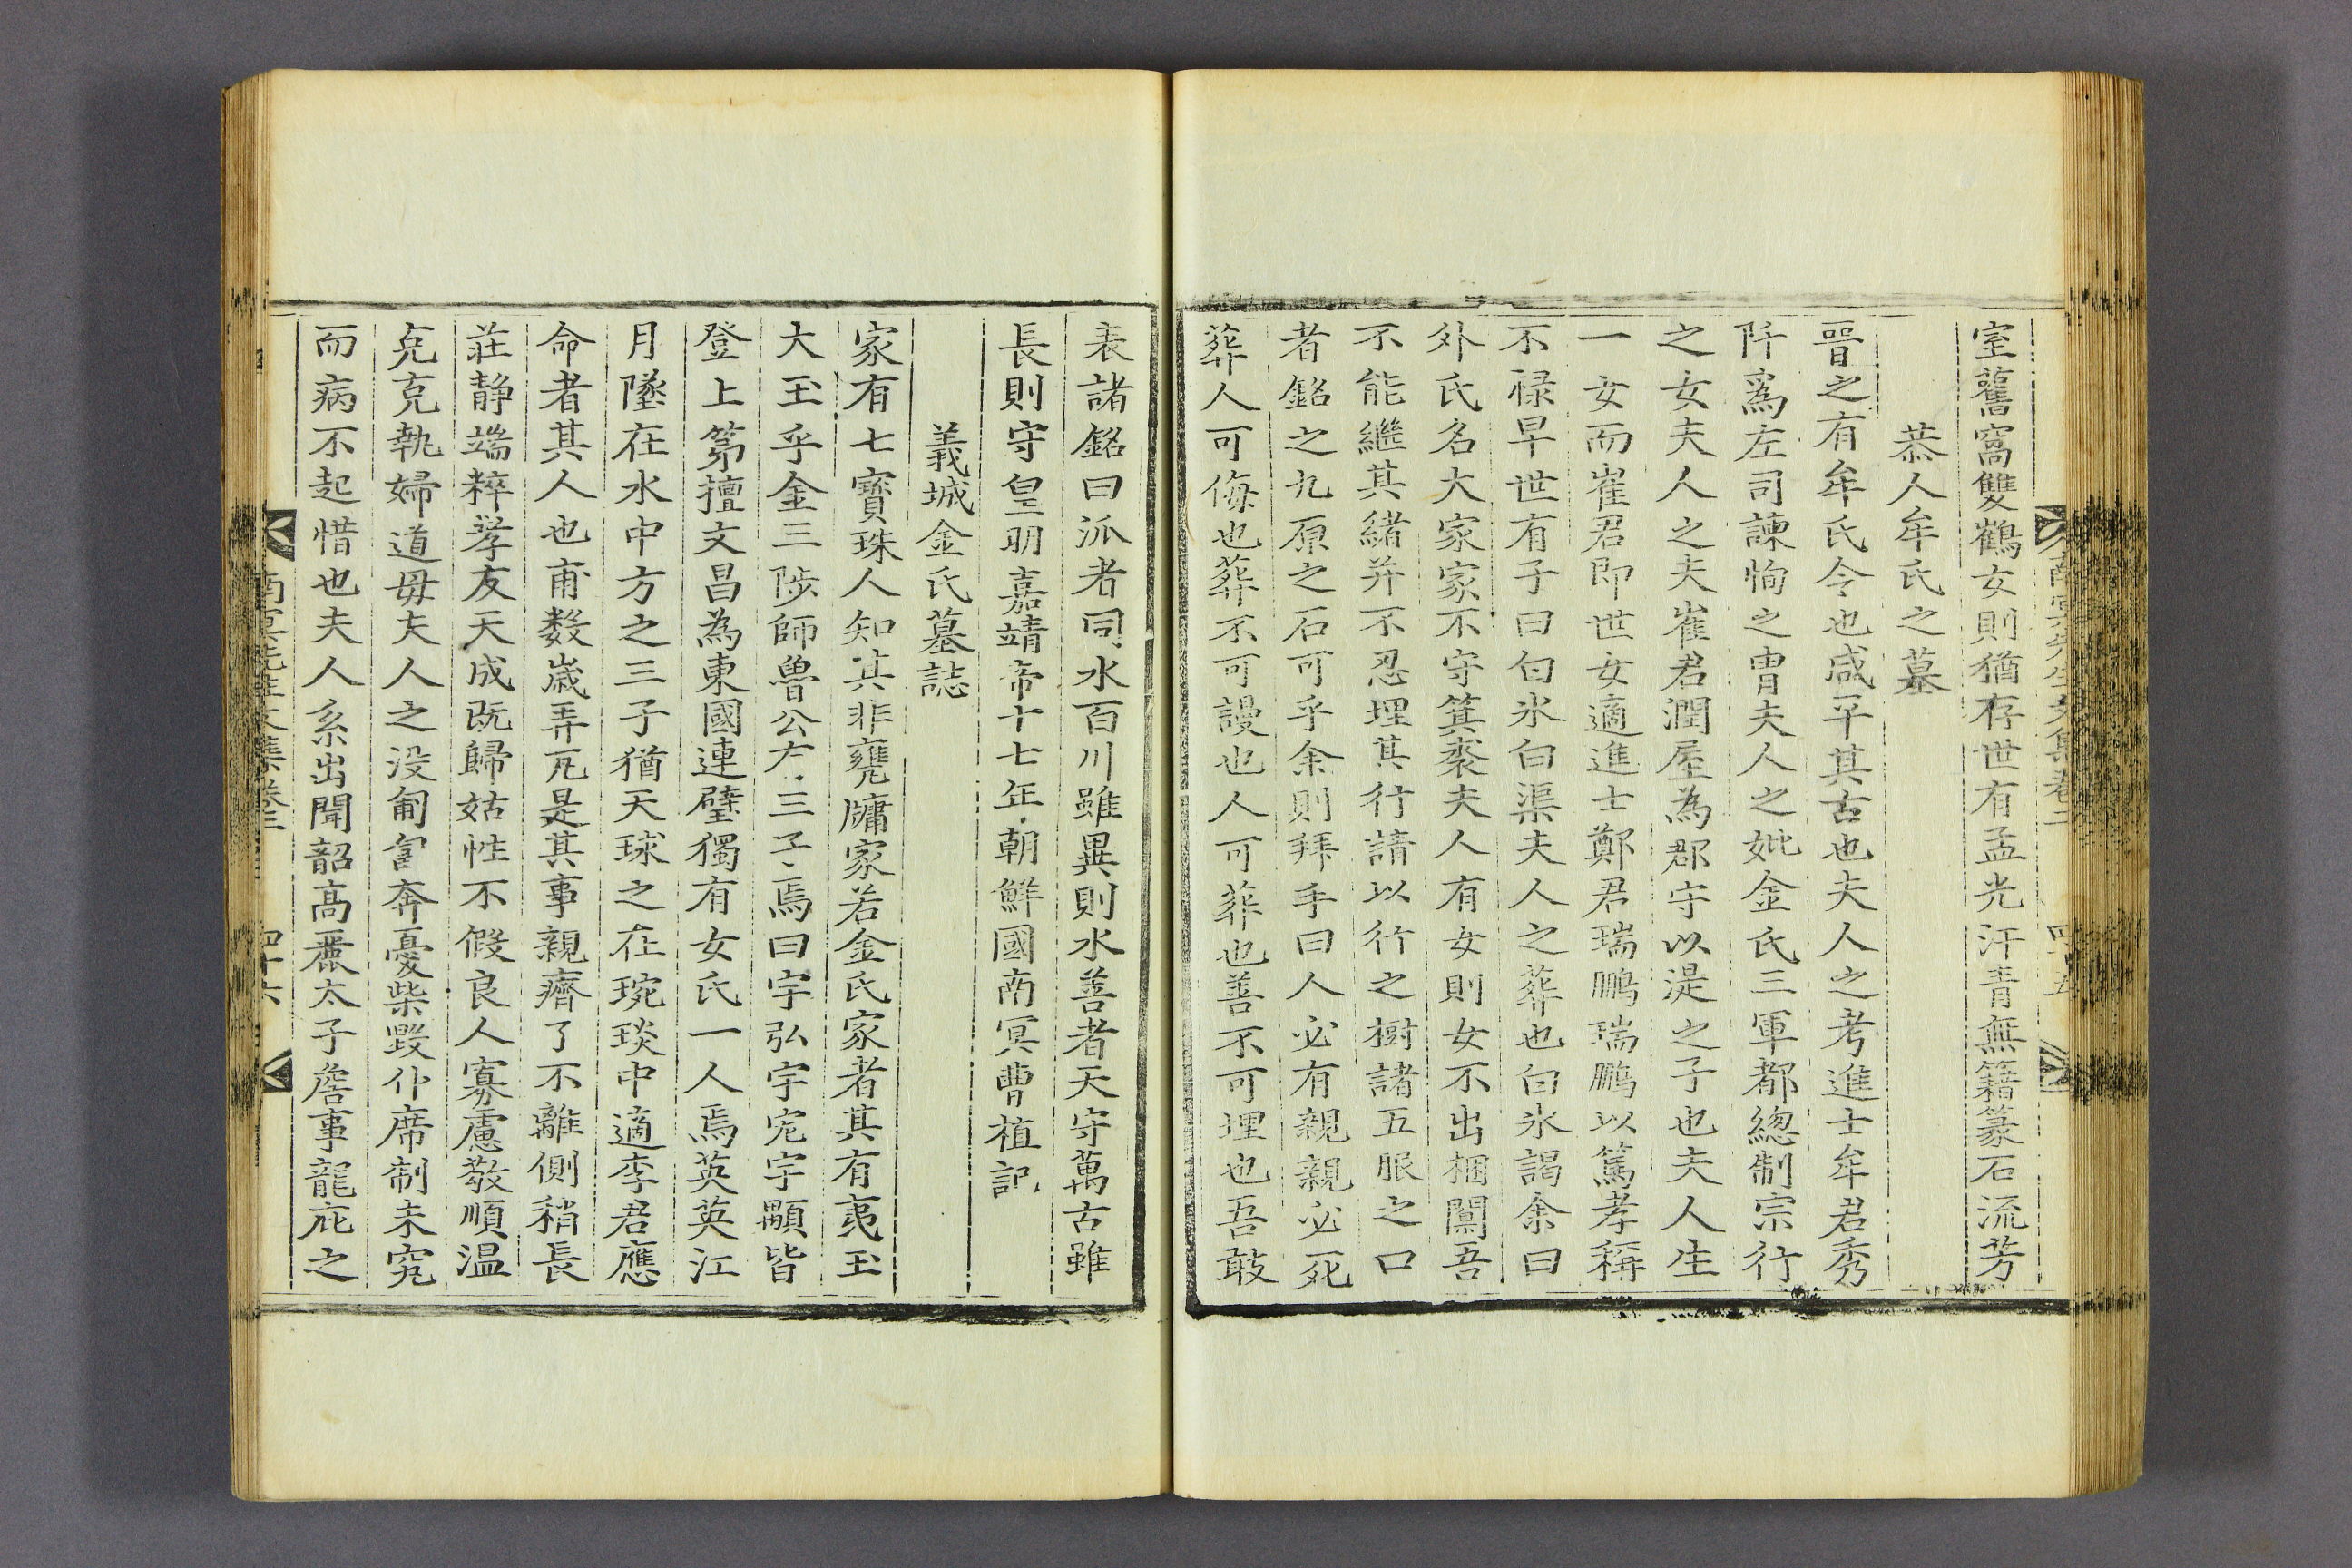 室舊窩雙鶴女則猶存世有孟光汗青無籍篆石流芳
恭人牟氏之墓
晉之有牟氏令也咸平其古也夫人之考進士牟君秀
阡爲左司諫恂之冑夫人之妣金氏三軍都緫制宗行
之女夫人之夫崔君潤屋為郡守以湜之子也夫人生
一女而崔君即世女適進士鄭君瑞鵬瑞鵬以篤孝稱
不禄早世有子曰白氷白渠夫人之葬也白氷謁余曰
外氏名大家家不守箕裘夫人有女則女不出梱闑吾
不能繼其緒并不忍埋其行請以行之樹諸五服之口
者銘之九原之石可乎余則拜手曰人必有親親必死
葬人可侮也葬不可謾也人可葬也善不可埋也吾敢
表諸銘曰派者同水百川雖異則水善者天守萬古雖
長則守皇明嘉靖帝十七年朝鮮國南冥曺植記
義城金氏墓誌
家有七寶珠人知其非甕牖家若金氏家者其有夷玉
大玉乎金三陟師魯公有三子焉曰宇弘宇宏宇顒皆
登上第擅文昌為東國連璧獨有女氏一人焉英英江
月墜在水中方之三子猶天球之在琬琰中適李君應
命者其人也甫数歲弄瓦是其事親癠了不離側稍長
莊静端粹孝友天成既歸姑性不假良人寡慮敬順温
皃克執婦道毋夫人之没匍匐奔憂柴毀仆席制未究
而病不起惜也夫人系出聞韶高麗太子詹事龍庇之
南冥先生文集卷三 四十六